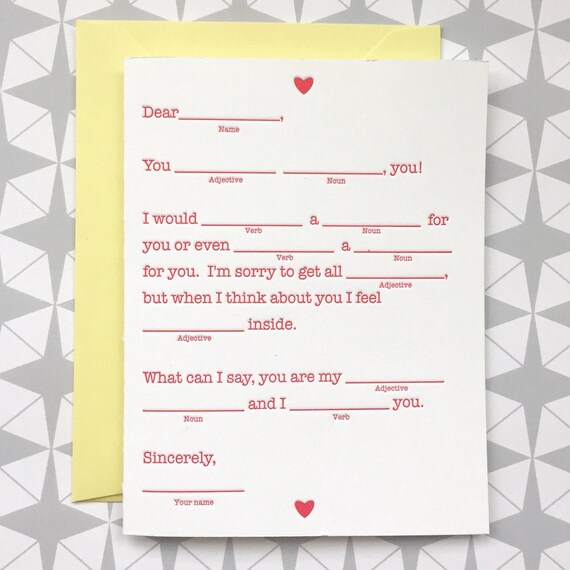 Dear__________,
Name
You __________ __________, you!
Adjective Noun
I would __________ a __________ for
Verb Noun
you or even __________ a __________
Verb Noun
for you. I'm sorry to get all __________,
Adjective
but when I think about you I feel
__________ inside.
Adjective
What can I say, you are my __________
Adjective
__________ and I __________ you.
Noun Verb
Sincerely,
__________
Your name